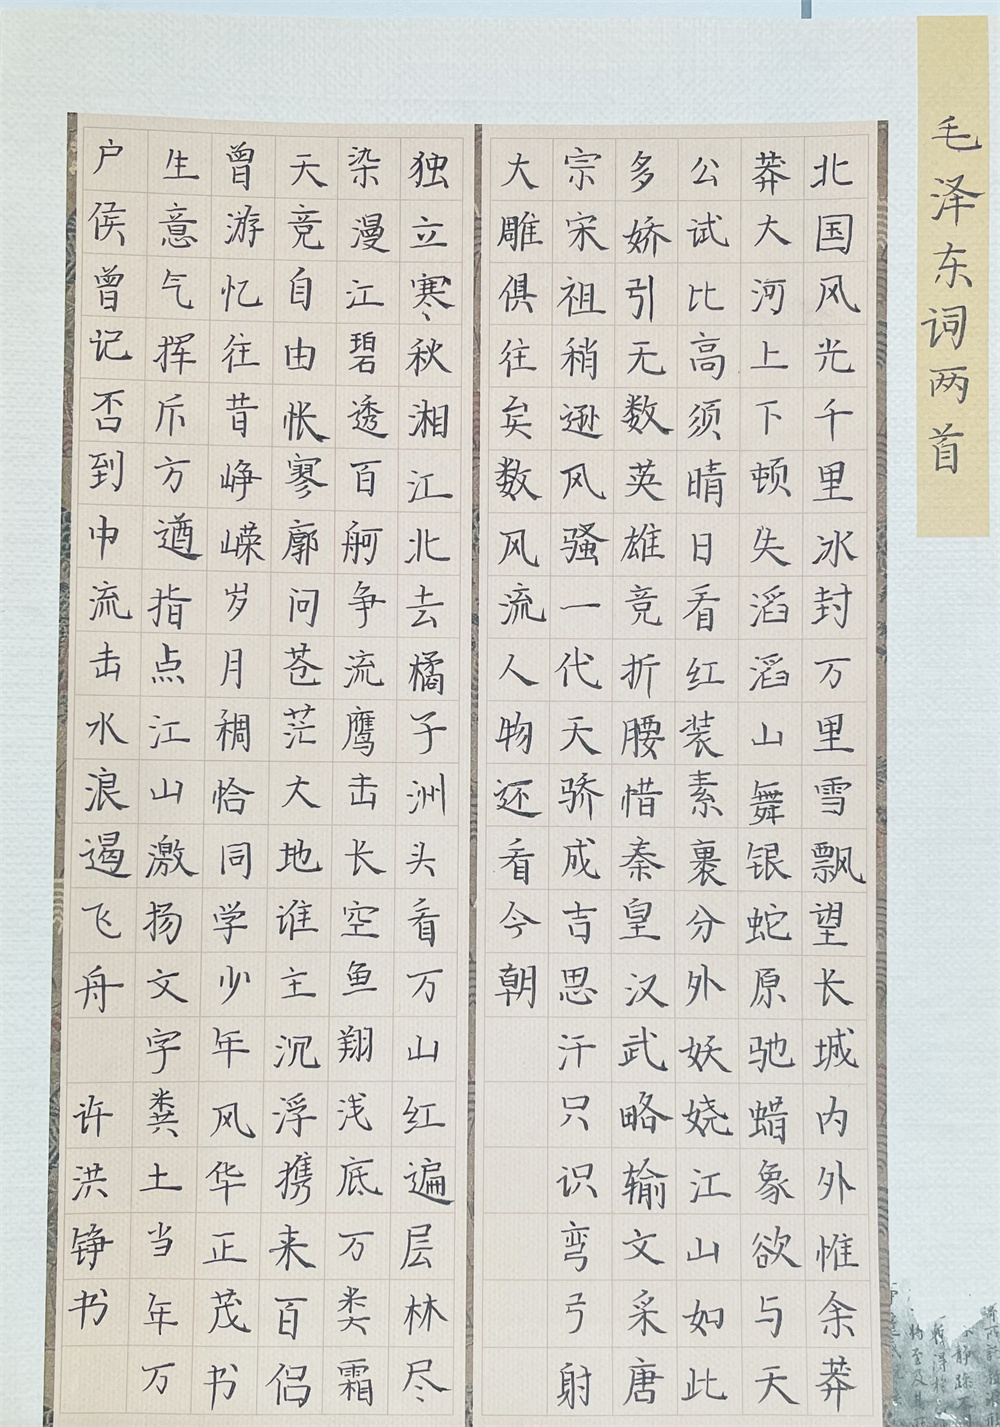 毛泽东词两首
北国风光千里冰封万里雪飘望长城内外惟余莽
莽大河上下顿失滔滔山舞银蛇原驰蜡象欲与天
公试比高须晴日看红装素裹分外妖娆江山如此
多娇引无数英雄竞折腰惜秦皇汉武略输文采唐
宗宋祖稍逊风骚一代天骄成吉思汗只识弯弓射
大雕俱往矣数风流人物还看今朝
独立寒秋湘江北去橘子洲头看万山红遍层林尽
染漫江碧透百舸争流鹰击长空鱼翔浅底万类霜
天竞自由怅寥廓问苍茫大地谁主沉浮携来百侣
曾游忆往昔峥嵘岁月稠恰同学少年风华正茂书
生意气挥斥方遒指点江山激扬文字粪土当年万
户侯曾记否到中流击水浪遏飞舟 许洪铮书